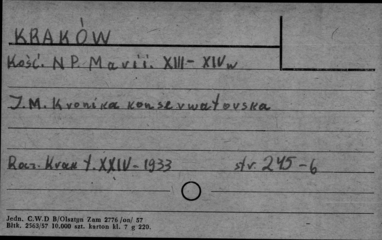 KRAKÓW
Kość. N.P. Marii. XIII - XIV w
J.M. Kronika konserwatorska
Rocz. Krak t. XXIV - 1933 str. 245-6
Jedn. C.W.D B/Olsztyn Zam 2776/on/57
Bltk. 2563/57 10.000 szt. karton kl. 7 g 220.